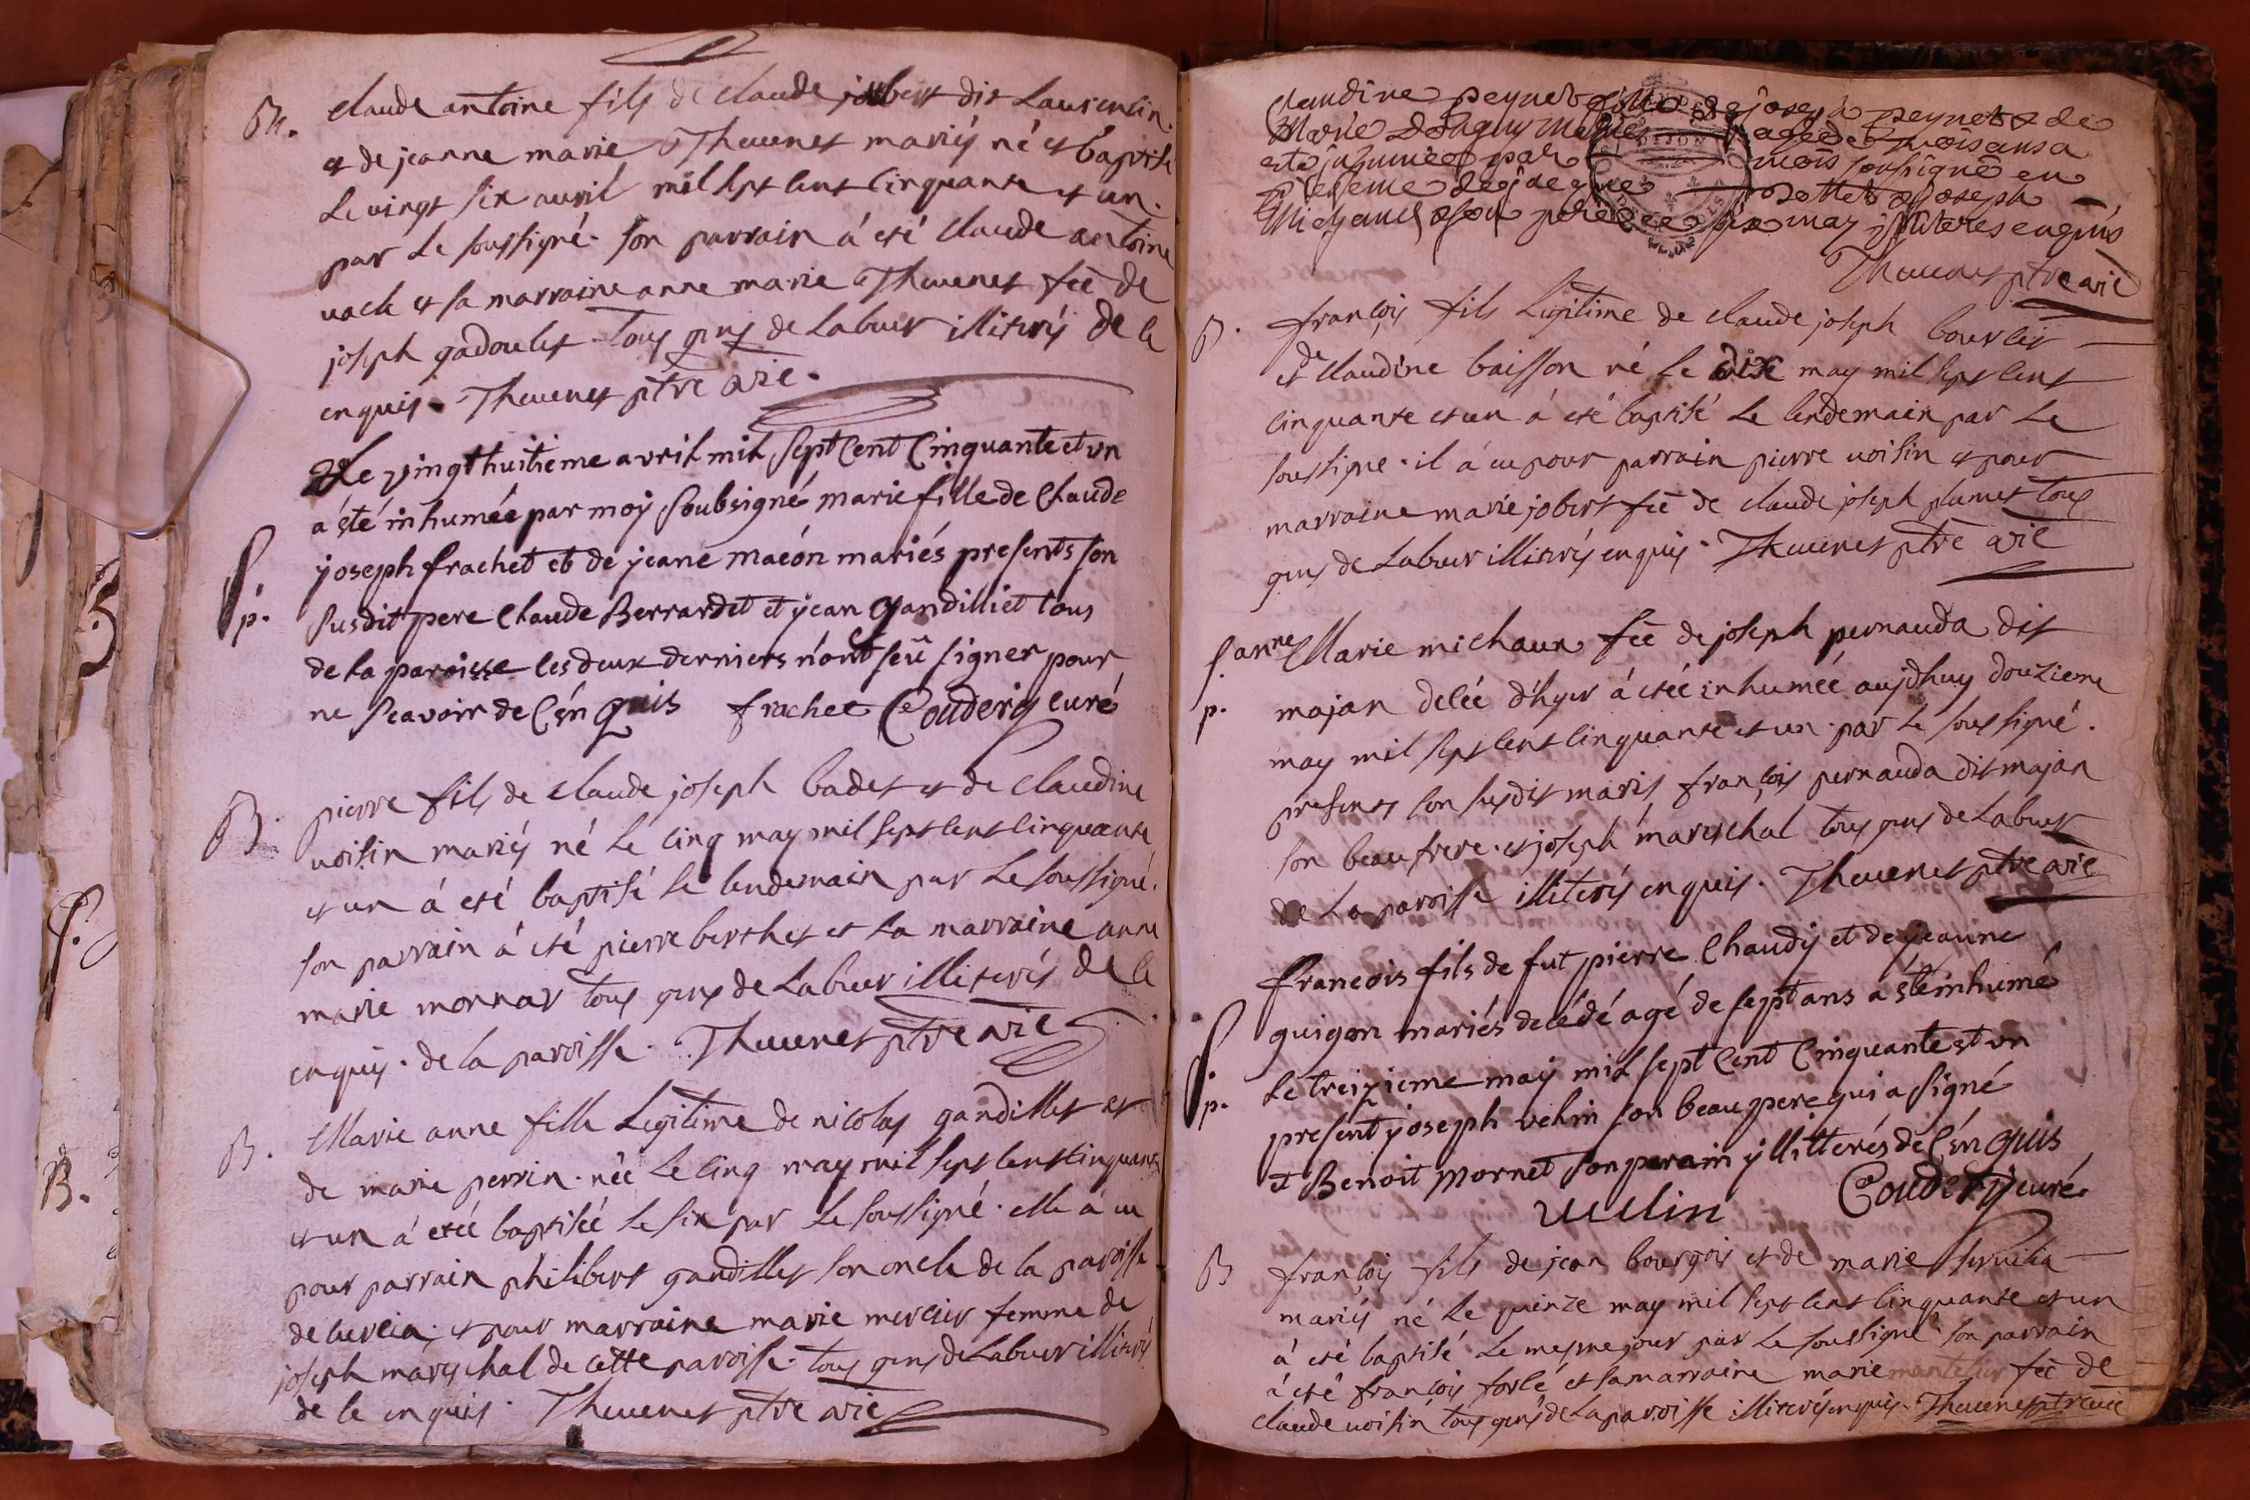 B.
claude antoine fils de claude jobert dit Laurentin.
et de jeanne marie Theuenet mariés né et baptisé
Le vingt six avril mil sept cent cinquante et un.
par Le soussigné. son parrain á eté claude antoine
uach et sa marraine anne marie Theuenet fe de
joseph gadoulet. tous gens de Labeur illiterés de ce
enquis. Theuenet ptre vic.
Le vingt huitieme avril mil sept Cent Cinquante et un
a été inhumée par moy soubsigné marie fille de Claude
S. p.
joseph frachet et de jeane macón mariés presents son
susdit pere Claude Berrardet et jean gandilliet tous
de la paroisse les deux derniers n'ont seu signer pour
ne sçavoir de C'en quis frachet Couderig curé
B.
pierre fils de claude joseph badet et de claudine
uoisin mariés né le cinq may mil sept cent cinquante
et un á eté baptisé le lendemain par Le soussigné.
son parrain á eté pierre berthet et La marraine anne
marie monnar tous gens de Labeur illiterés de ce
enquis. de la paroisse. Theuenet ptre vic
B.
Marie anne fille Legitime de nicolas gandillet et
de marie perrin. née Le cinq may mil sept cent cinquante
et un á etéé baptiséé le six par Le soussigné. elle á eu
pour parrain philibert gandillet son oncle de la paroisse
de cuvcia. et pour marraine marie mercier femme de
joseph mareschal de cette paroisse. tous gens de Labeur illiterés
de ce enquis. Theuenet ptre vic
Claudine peynet fille de joseph peynet et de
Marie agée de trois ans a
eté inhumée par mois soussigné en
presence de jacque Dottet joseph
Michaud son pere ce six may illiteres enquis
Theuenet ptre vic
B.
françois fils Legitime de claude joseph bourlier
et de claudine baisson né le dix may mil sept cent
cinquante et un á eté baptisé Le lendemain par Le
soussigné. il á eu pour parrain pierre uoisin et pour
marraine marie jobert fe de claude joseph plumet tous
gens de Labeur illiterés enquis. Theuenet ptre vic
S. p.
anne Marie michaux fe de joseph pernauda dit
majan decéé d'hyer á etéé inhuméé aujdhuy douzieme
may mil sept cent cinquante et un. par Le soussigné.
presents son susdit maris, françois pernauda dit majan
son beaufrere. et joseph mareschal tous gens de Labeur
de La paroisse illiterés enquis. Theuenet ptre vic
francois fils de fut pierre Chaudy et de jeanne
guigon mariés decédé agé de sept ans a été inhumé
S. p.
Le treizieme may mil sept Cent Cinquante et un
present joseph velin son beau pere qui a signé
et Benoit mornet son perain yllitterés de C'en quis
uuelin Couderig curé.
B
françois fils de jean bourgois et de marie
mariés né Le quinze may mil sept cent cinquante et un
á eté baptisé Le mesme jour par Le soussigné son parrain
á eté françois forlé et sa marraine marie fe de
claude uoisin tous gens de La paroisse illiterés enquis. Theuenet ptre vic